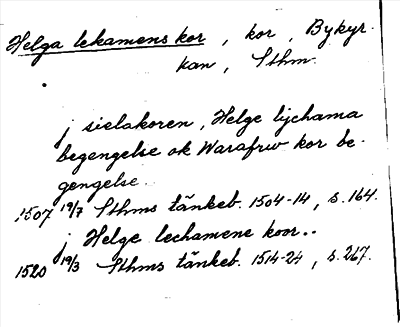 Helga lekamens kor, kor, Bykyr-
kan, Sthm.
j sielakoren, Helge lijchama
begengelse ok Warafrw kor be-
gengelse.
1507 19/7 Sthms tänkeb. 1504-14, s. 164.
j Helge lechamene koor..
1520 19/3 Sthms tänkeb. 1514-24, s. 267.